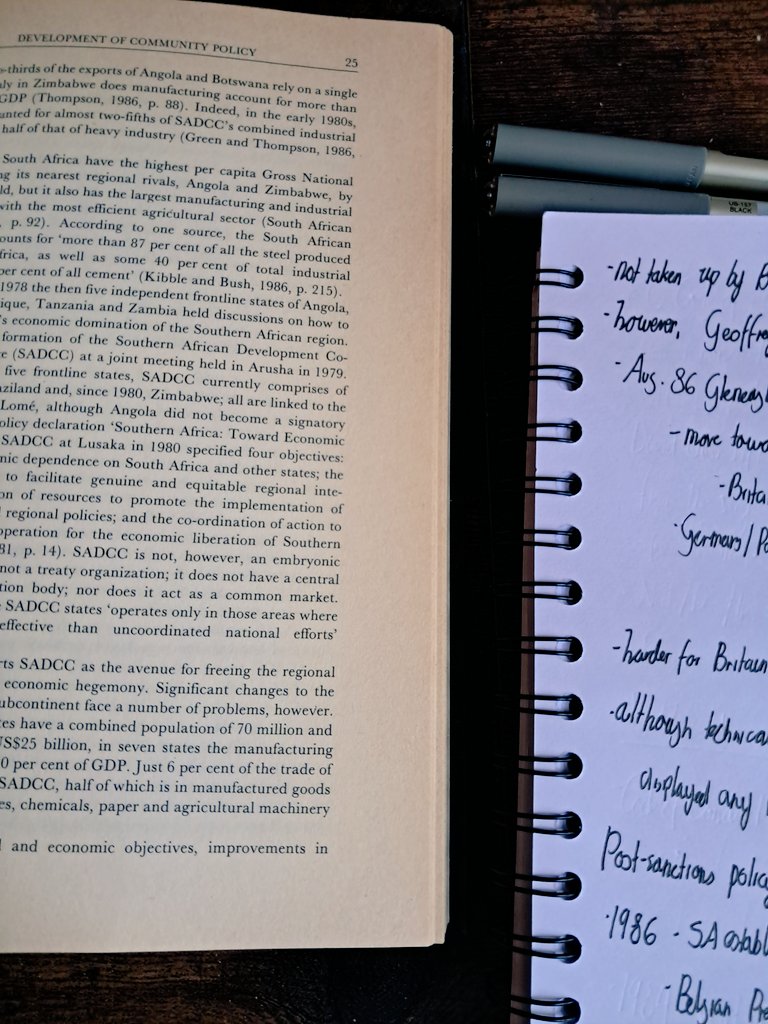 DEVELOPMENT OF COMMUNITY POLICY
25
-thirds of the exports of Angola and Botswana rely on a single
ly in Zimbabwe does manufacturing account for more than
GDP (Thompson, 1986, p. 88). Indeed, in the early 1980s,
anted for almost two-fifths of SADCC's combined industrial
half of that of heavy industry (Green and Thompson, 1986,
South Africa have the highest per capita Gross National
ng its nearest regional rivals, Angola and Zimbabwe, by
ld, but it also has the largest manufacturing and industrial
with the most efficient agricultural sector (South African
, p. 92). According to one source, the South African
ounts for 'more than 87 per cent of all the steel produced
frica, as well as some 40 per cent of total industrial
per cent of all cement' (Kibble and Bush, 1986, p. 215).
1978 the then five independent frontline states of Angola,
ique, Tanzania and Zambia held discussions on how to
's economic domination of the Southern African region.
formation of the Southern African Development Co-
e (SADCC) at a joint meeting held in Arusha in 1979.
five frontline states, SADCC currently comprises of
aziland and, since 1980, Zimbabwe; all are linked to the
Lomé, although Angola did not become a signatory
olicy declaration 'Southern Africa: Toward Economic
SADCC at Lusaka in 1980 specified four objectives:
nic dependence on South Africa and other states; the
to facilitate genuine and equitable regional inte-
on of resources to promote the implementation of
regional policies; and the co-ordination of action to
operation for the economic liberation of Southern
81, p. 14). SADCC is not, however, an embryonic
not a treaty organization; it does not have a central
tion body; nor does it act as a common market.
SADCC states 'operates only in those areas where
effective than uncoordinated national efforts'
rts SADCC as the avenue for freeing the regional
economic hegemony. Significant changes to the
ubcontinent face a number of problems, however.
tes have a combined population of 70 million and
US$25 billion, in seven states the manufacturing
0 per cent of GDP. Just 6 per cent of the trade of
SADCC, half of which is in manufactured goods
es, chemicals, paper and agricultural machinery
l and economic objectives, improvements in
UB-157
BLACK
-not taken up by B
-however, Geoffrey
-Aug. 86 Gleneagl
-move towa
-Brita
-Germany/Po
-harder for Britain
-although technica
displayed any
Post-sanctions policy
-1986 - SA establ
-Belgian Pre